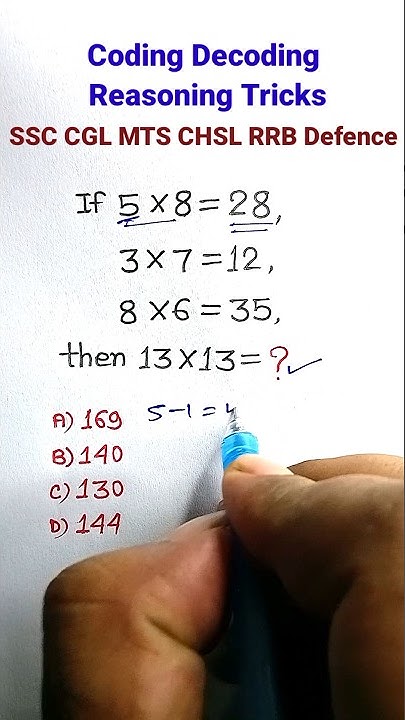 Coding Decoding
Reasoning Tricks
SSC CGL MTS CHSL RRB Defence
If 5×8=28,
3×7=12,
8×6=35,
then 13×13=?
A) 169
B) 140
C) 130
D) 144
5-1=4